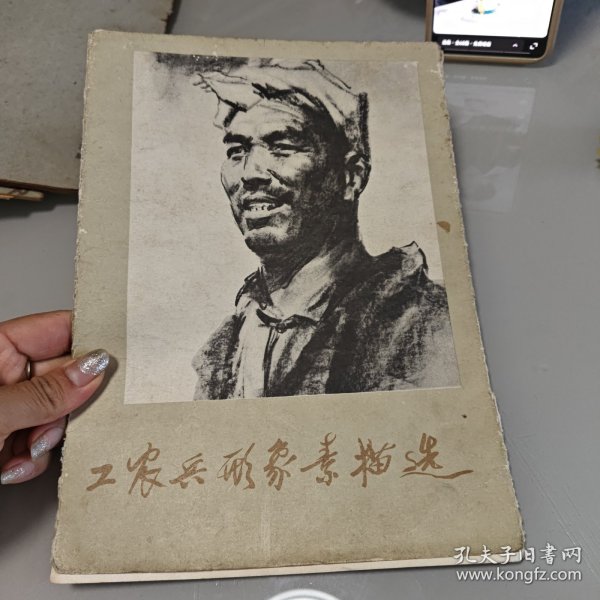 工农兵形象素描选
孔夫子旧书网
www.kongfz.com